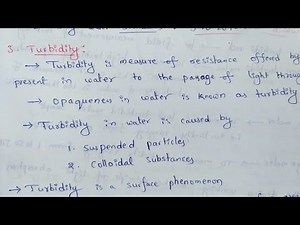 3. Turbidity:
→ Turbidity is measure of resistance offered by
present in water to the passage of light throu
→ Opaqueness in water is known as turbidity
→ Turbidity in water is caused by
1. suspended particles
2. colloidal substances
→ Turbidity is a surface phenomenon